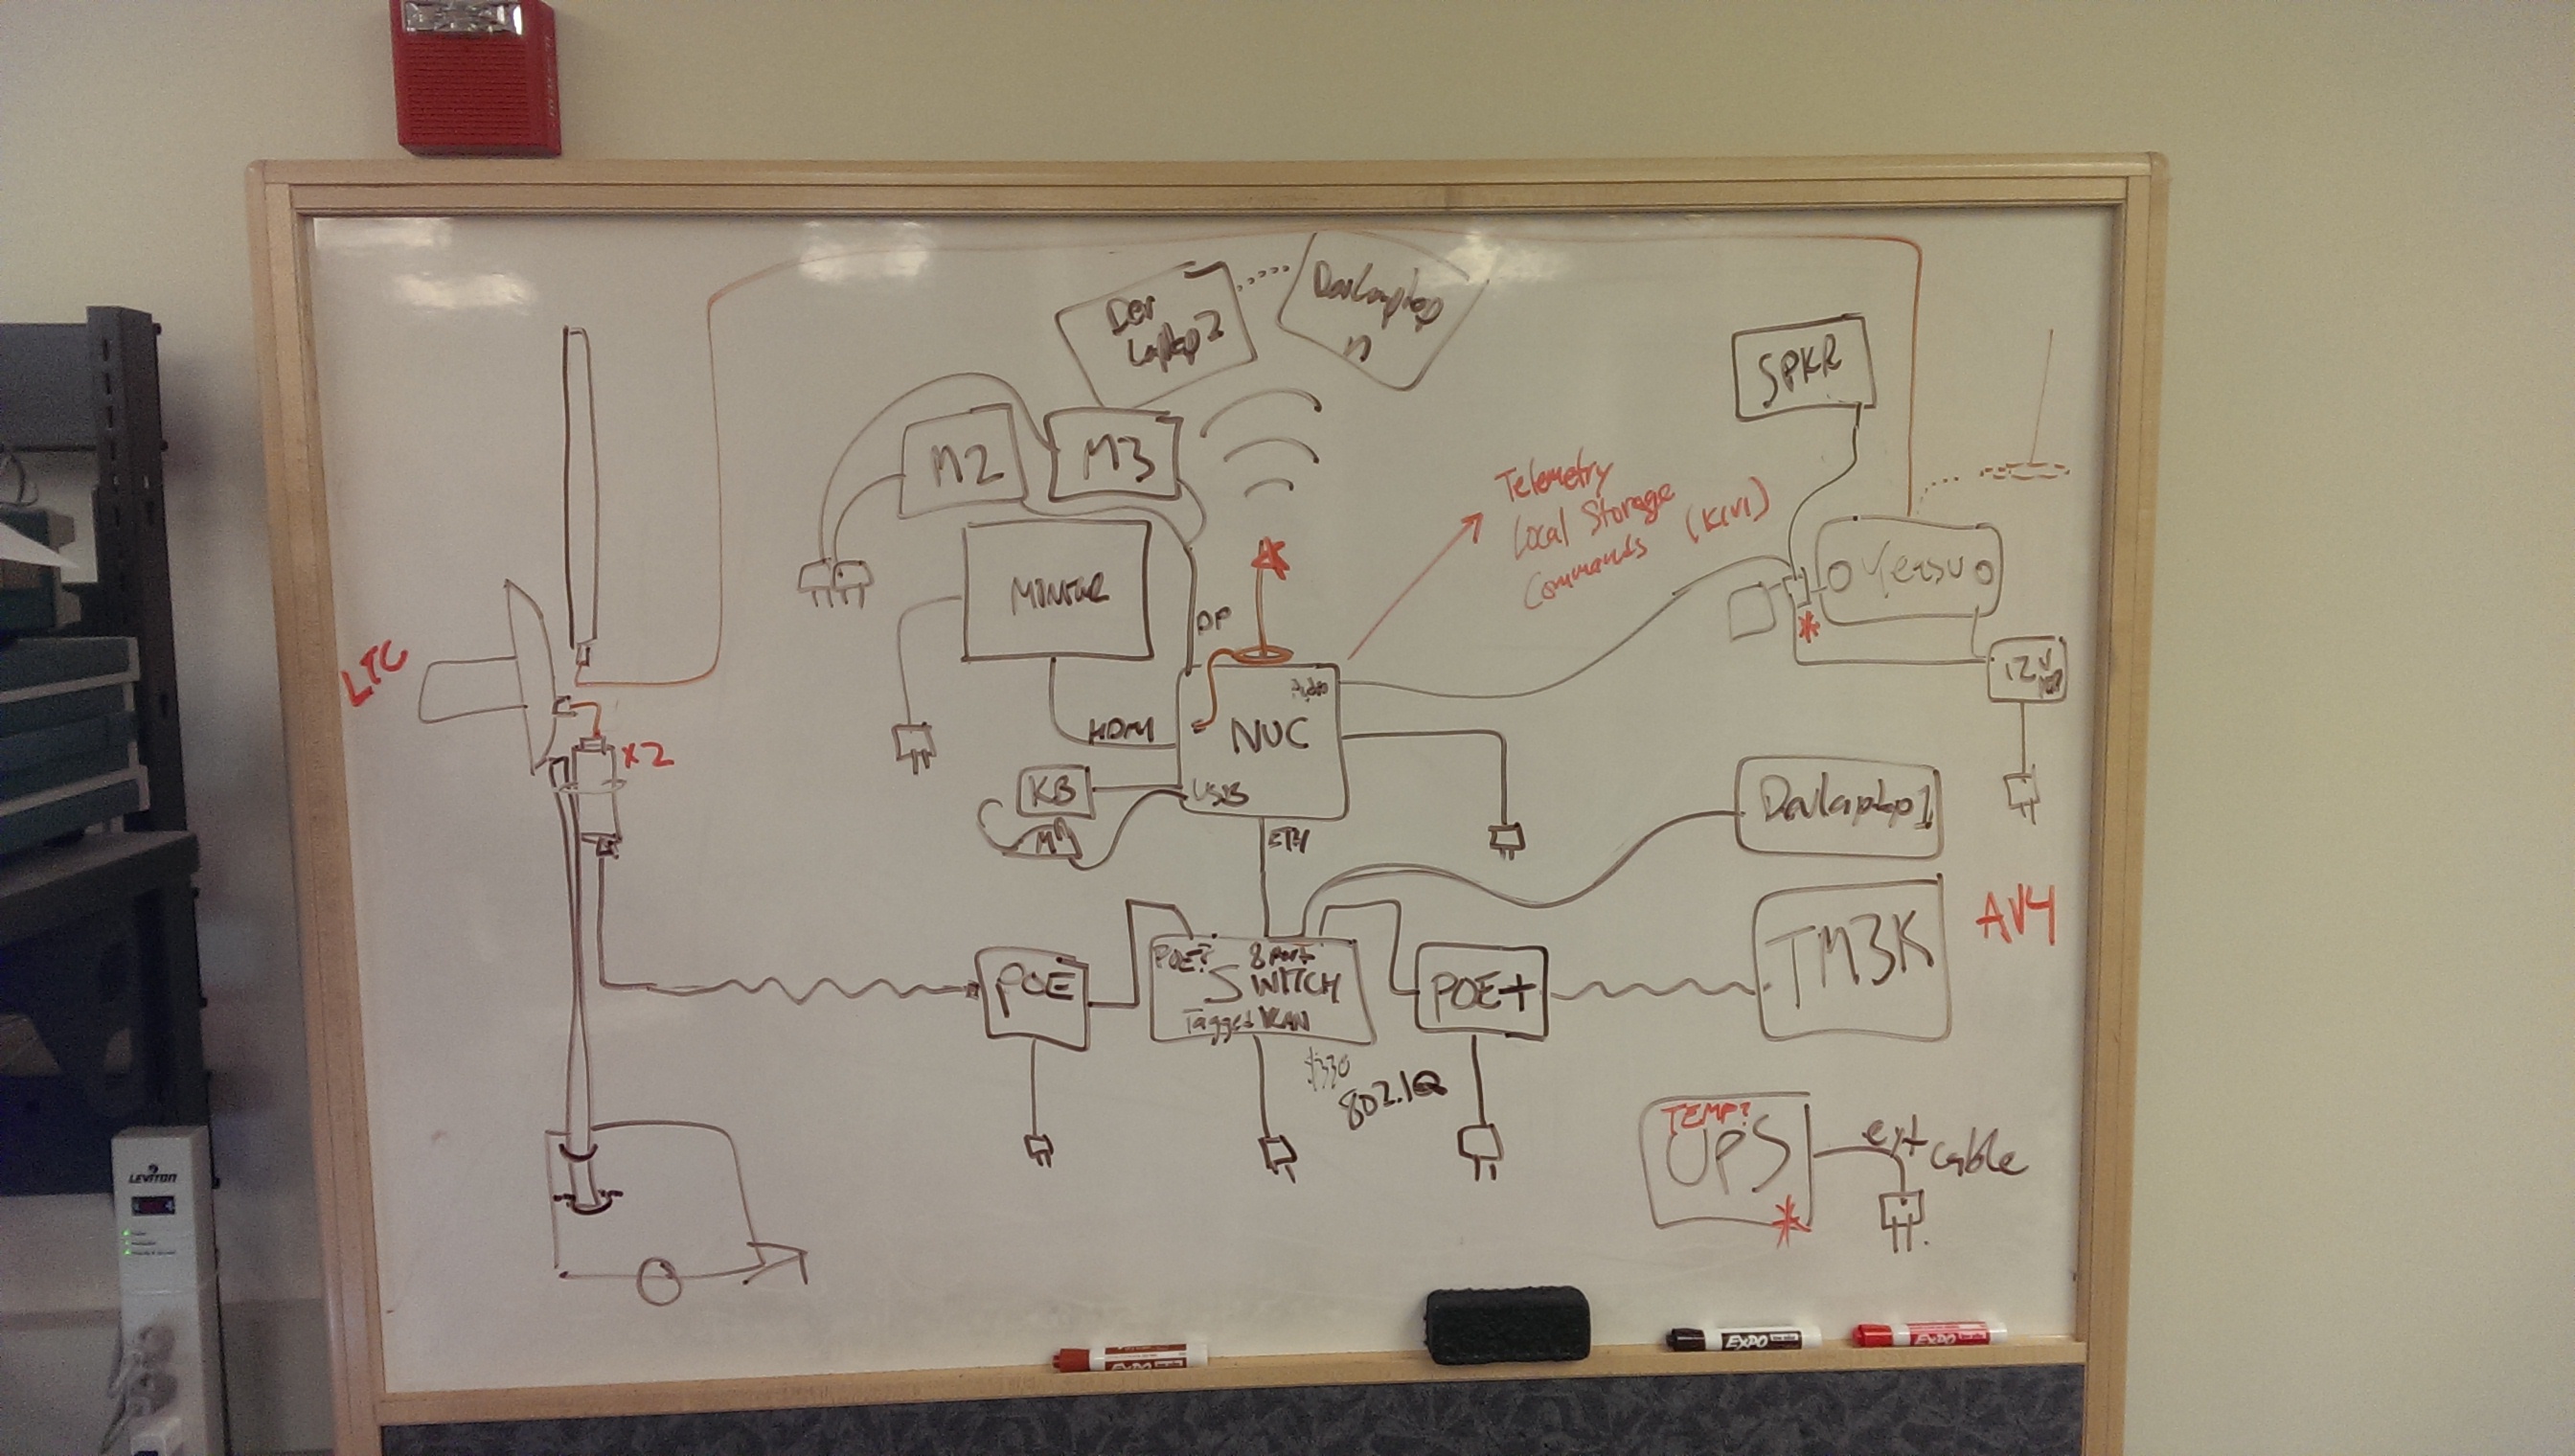 Dev
Laptop2
DevLaptop
n
SPKR
M2
M3
Telemetry
Local Storage
Commands (KIVI)
Yeasu
*
LTC
DP
Audio
NUC
HDMI
12V
x2
KB
USB
M
ETH
Devlaptop1
AV4
TM3K
POE
POE?
8 Port
SWITCH
Tagged VLAN
POE+
$330
802.1Q
TEMP?
UPS
*
ext
cable
LEVITON
EXPO
EXPO
EXPO